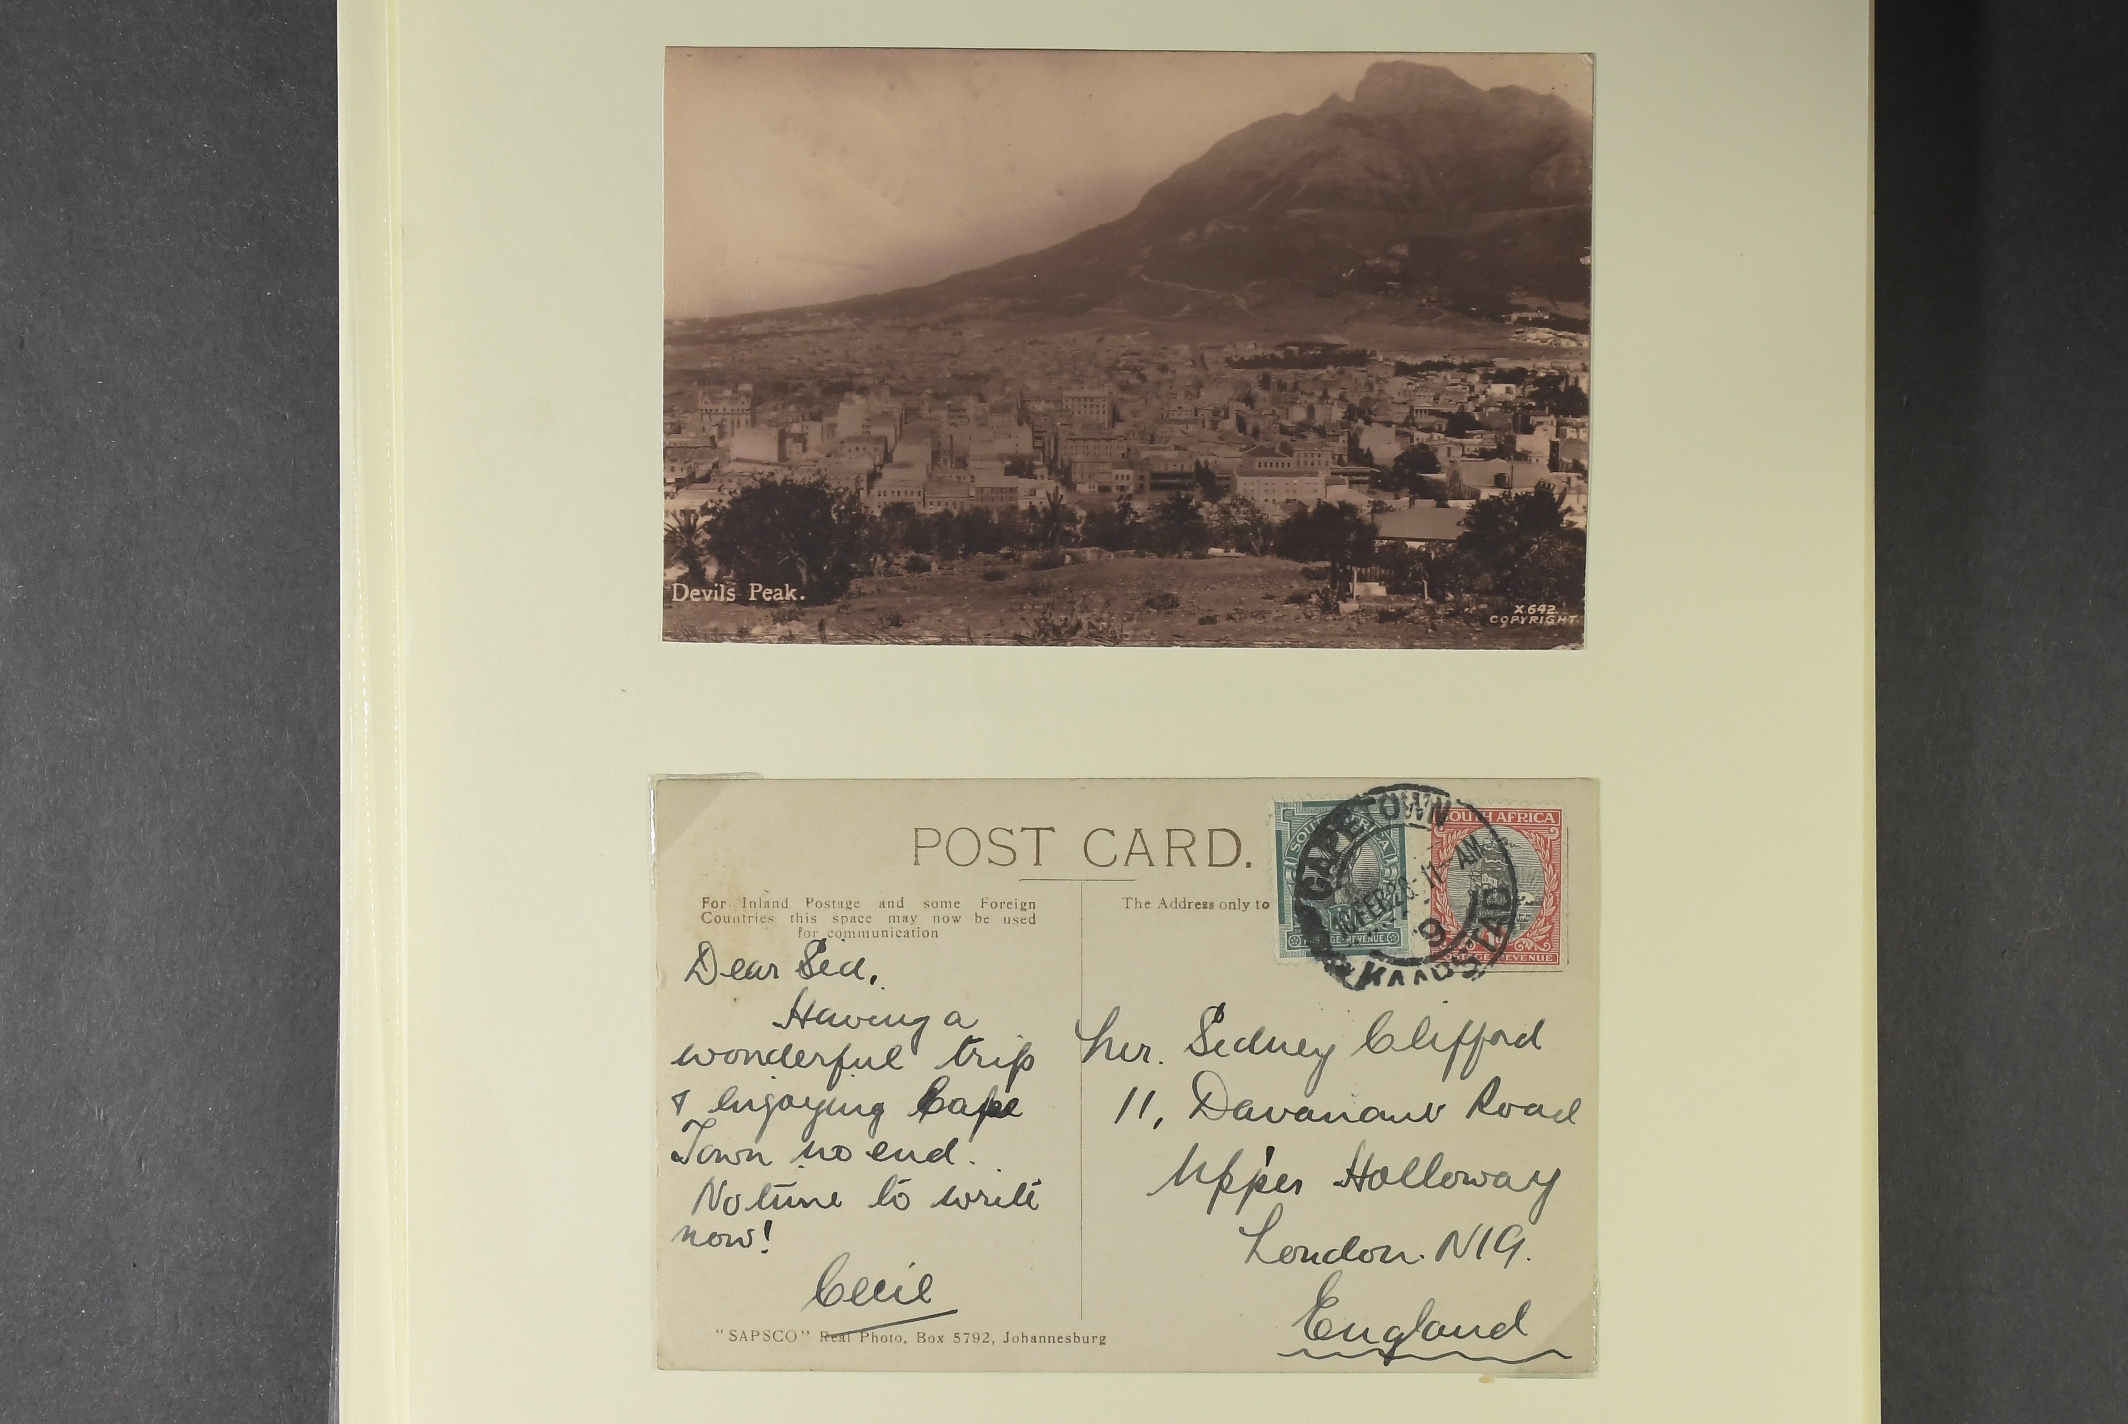 Devils Peak.
X.642.
COPYRIGHT.
POST CARD.
For Inland Postage and some Foreign
Countries this space may now be used
for communication
The Address only to
SOUTH AFRICA
POSTAGE-REVENUE
SOUTH AFRICA
POSTAGE REVENUE
CAPE TOWN
10 FEB 28 11 - AM
9
KAAPSTAD
Dear Sid,
Having a
wonderful trip
& enjoying Cape
Town no end.
No time to write
now!
Cecil
Mr. Sidney Clifford
11, Davanant Road
Upper Holloway
London. N19.
England
"SAPSCO" Real Photo, Box 5792, Johannesburg